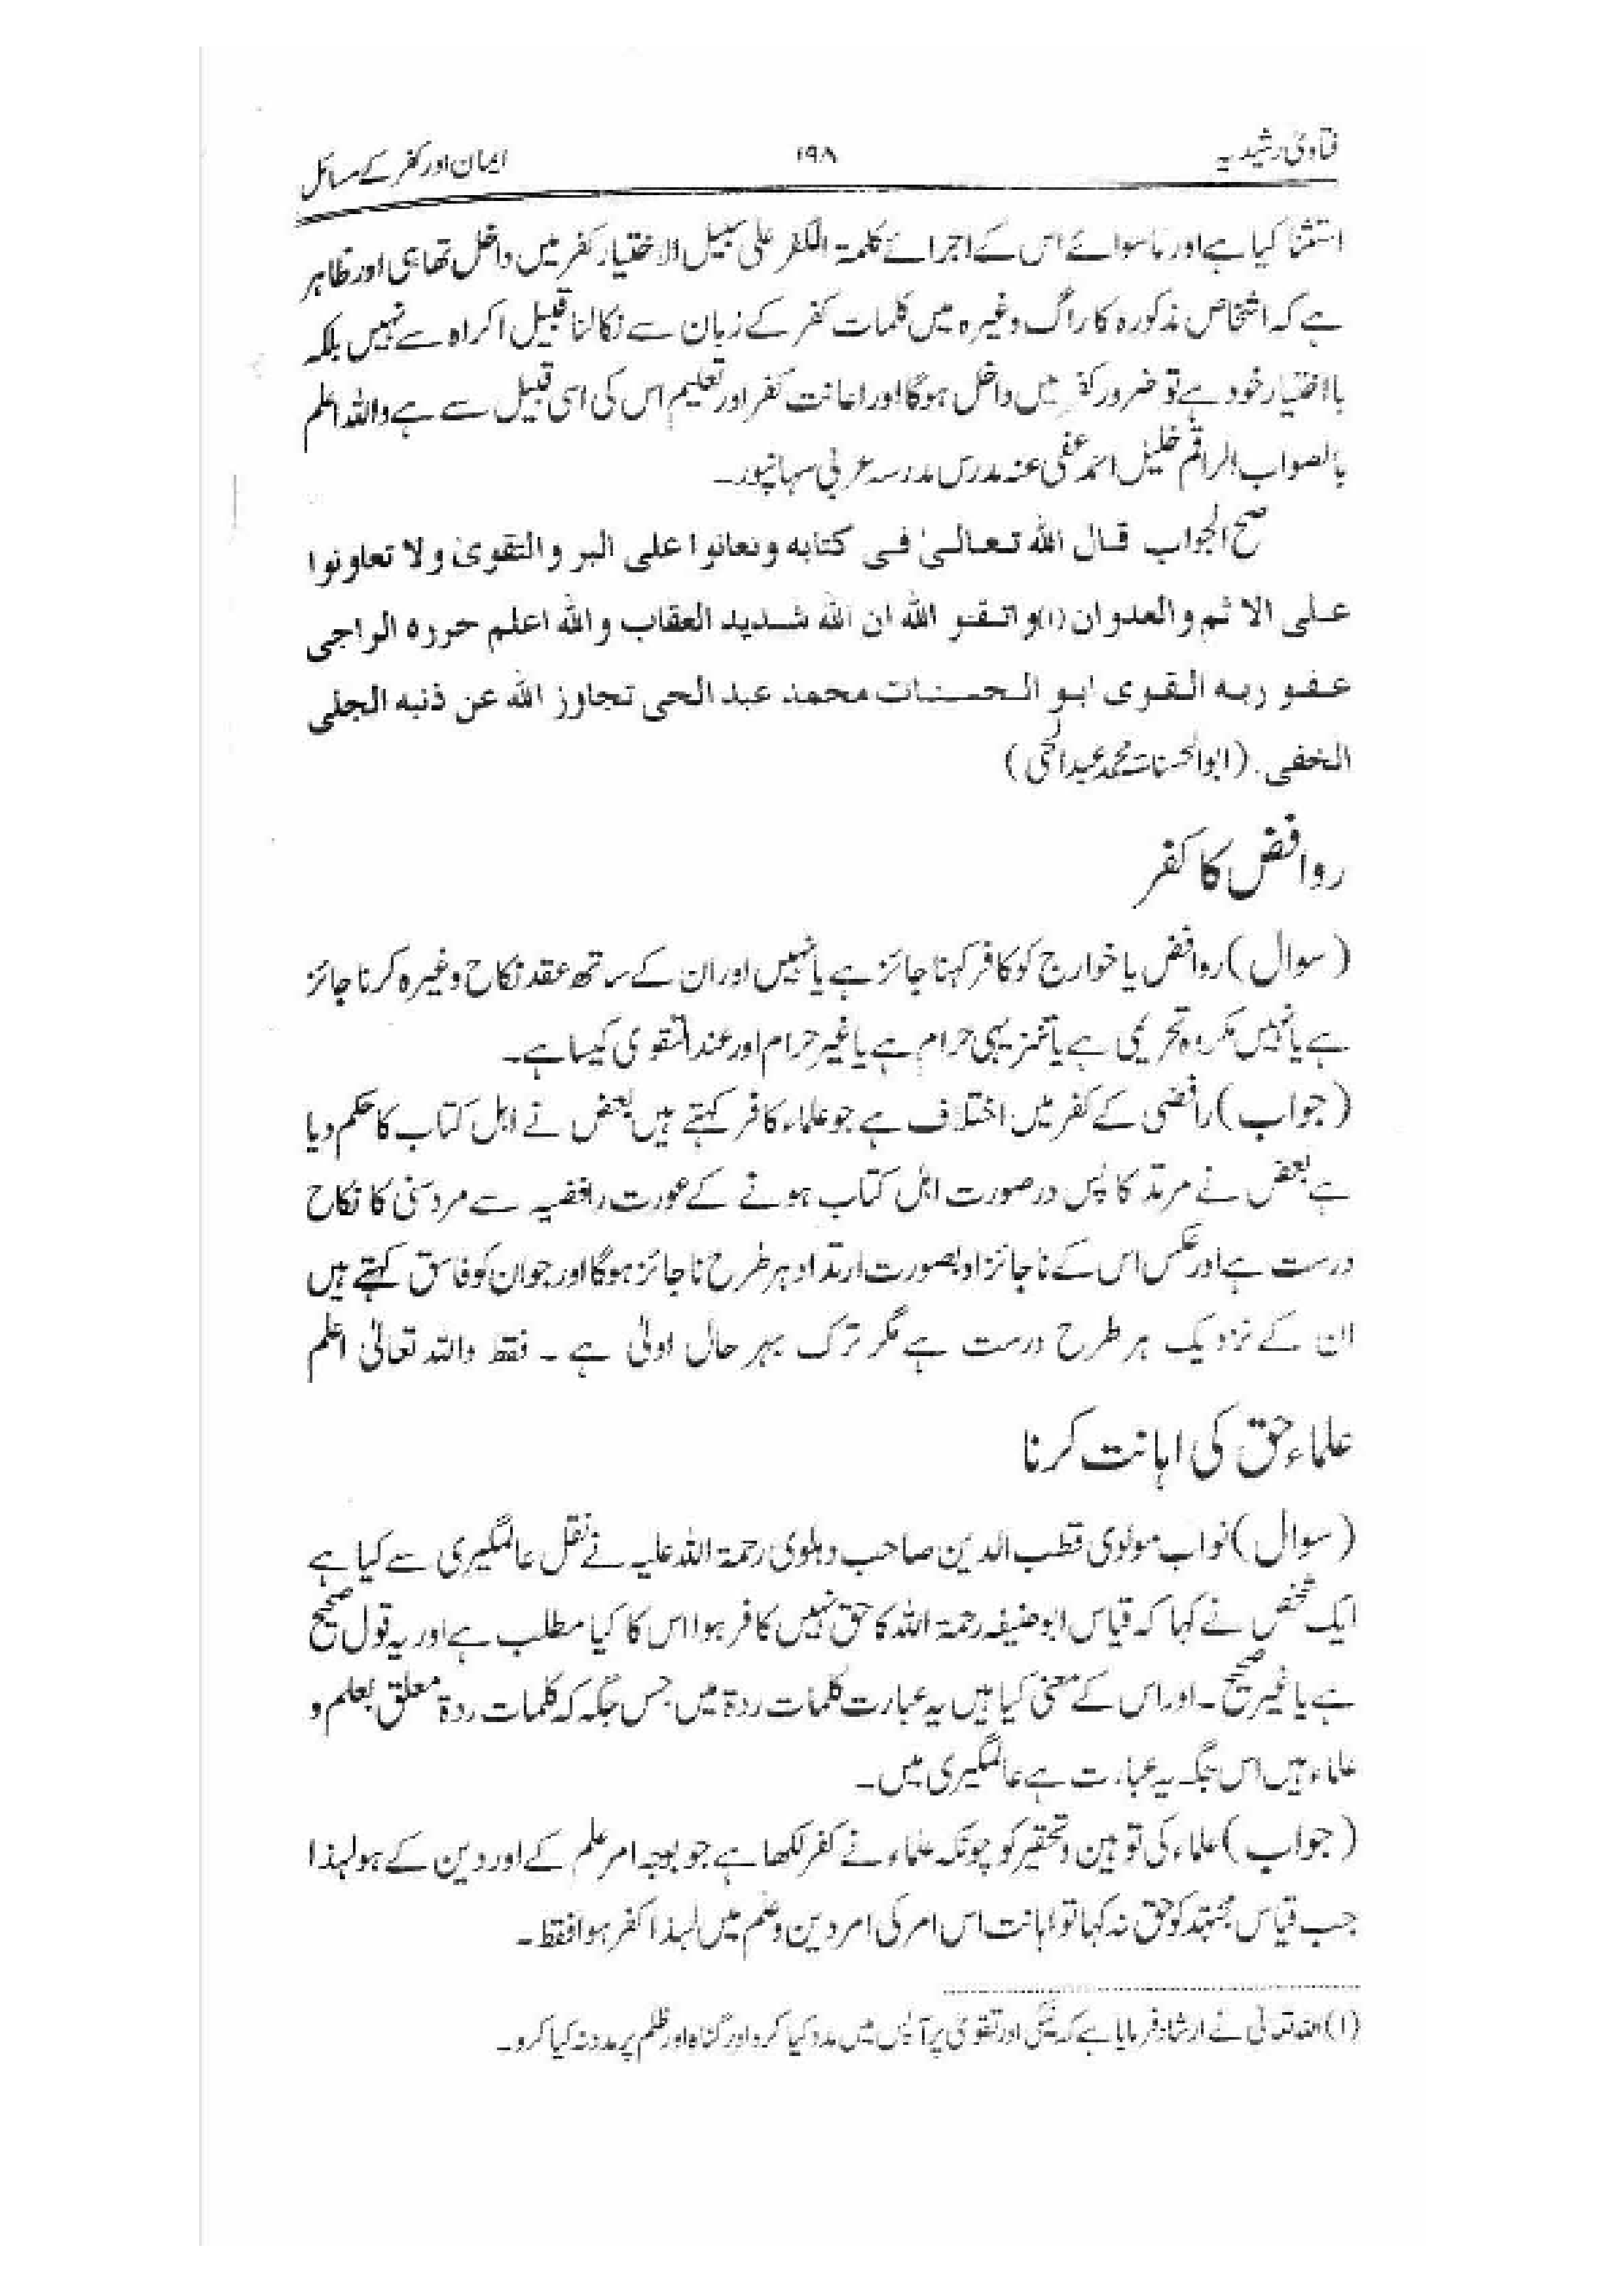 فتاویٰ رشیدیہ ۱۹۸ ایمان اور کفر کے مسائل
استثنا کیا ہے اور ماسوائے اس کے اجرائے کلمۃ الکفر علی سبیل الاختیار کفر میں داخل تھا ہی اور ظاہر
ہے کہ اشخاص مذکورہ کا راگ وغیرہ میں کلمات کفر کے زبان سے نکالنا قبیل اکراہ سے نہیں بلکہ
بااختیار خود ہے تو ضرور کفر میں داخل ہوگا اور اعانت کفر اور تعلیم اس کی اسی قبیل سے ہے واللہ اعلم
بالصواب الراقم خلیل احمد عفی عنہ مدرس مدرسہ عربی سہانپور۔
صح الجواب قال اللہ تعالیٰ فی کتابہ وتعانوا علی البر والتقویٰ ولا تعاونوا
علی الاثم والعدوان(۱)واتقو اللہ ان اللہ شدید العقاب واللہ اعلم حررہ الراجی
عفو ربہ القوی ابو الحسنات محمد عبد الحی تجاوز اللہ عن ذنبہ الجلی
الخفی. (ابوالحسنات محمد عبدالحی)
روافض کا کفر
(سوال) روافض یا خوارج کو کافر کہنا جائز ہے یا نہیں اور ان کے ساتھ عقد نکاح وغیرہ کرنا جائز
ہے یا نہیں مکروہ تحریمی ہے یا تنزیہی حرام ہے یا غیر حرام اور عند التقوی کیسا ہے۔
(جواب) رافضی کے کفر میں اختلاف ہے جو علماء کافر کہتے ہیں بعض نے اہل کتاب کا حکم دیا
ہے بعض نے مرتد کا پس درصورت اہل کتاب ہونے کے عورت رافضیہ سے مرد سنی کا نکاح
درست ہے اور عکس اس کے ناجائز اور بصورت ارتداد ہر طرح ناجائز ہوگا اور جو ان کو فاسق کہتے ہیں
ان کے نزدیک ہر طرح درست ہے مگر ترک بہر حال اولیٰ ہے ۔ فقط واللہ تعالیٰ اعلم
علماء حق کی اہانت کرنا
(سوال) نواب مولوی قطب الدین صاحب دہلوی رحمۃ اللہ علیہ نے نقل عالمگیری سے کیا ہے
ایک شخص نے کہا کہ قیاس ابو حنیفہ رحمۃ اللہ کا حق نہیں کافر ہوا اس کا کیا مطلب ہے اور یہ قول صحیح
ہے یا غیر صحیح ۔ اور اس کے معنی کیا ہیں یہ عبارت کلمات ردۃ میں جس جگہ کہ کلمات ردۃ معلق بعلم و
علماء ہیں اس جگہ یہ عبارت ہے عالمگیری میں۔
(جواب) علماء کی توہین و تحقیر کو چونکہ علماء نے کفر لکھا ہے جو بوجہ امر علم کے اور دین کے ہو لہذا
جب قیاس مجتہد کو حق نہ کہا تو اہانت اس امر کی امر دین و علم میں لہذا کفر ہوا فقط۔
(۱) اللہ تعالیٰ نے ارشاد فرمایا ہے کہ نیکی اور تقویٰ پر آپس میں مدد کیا کرو اور گناہ اور ظلم پر مدد نہ کیا کرو۔